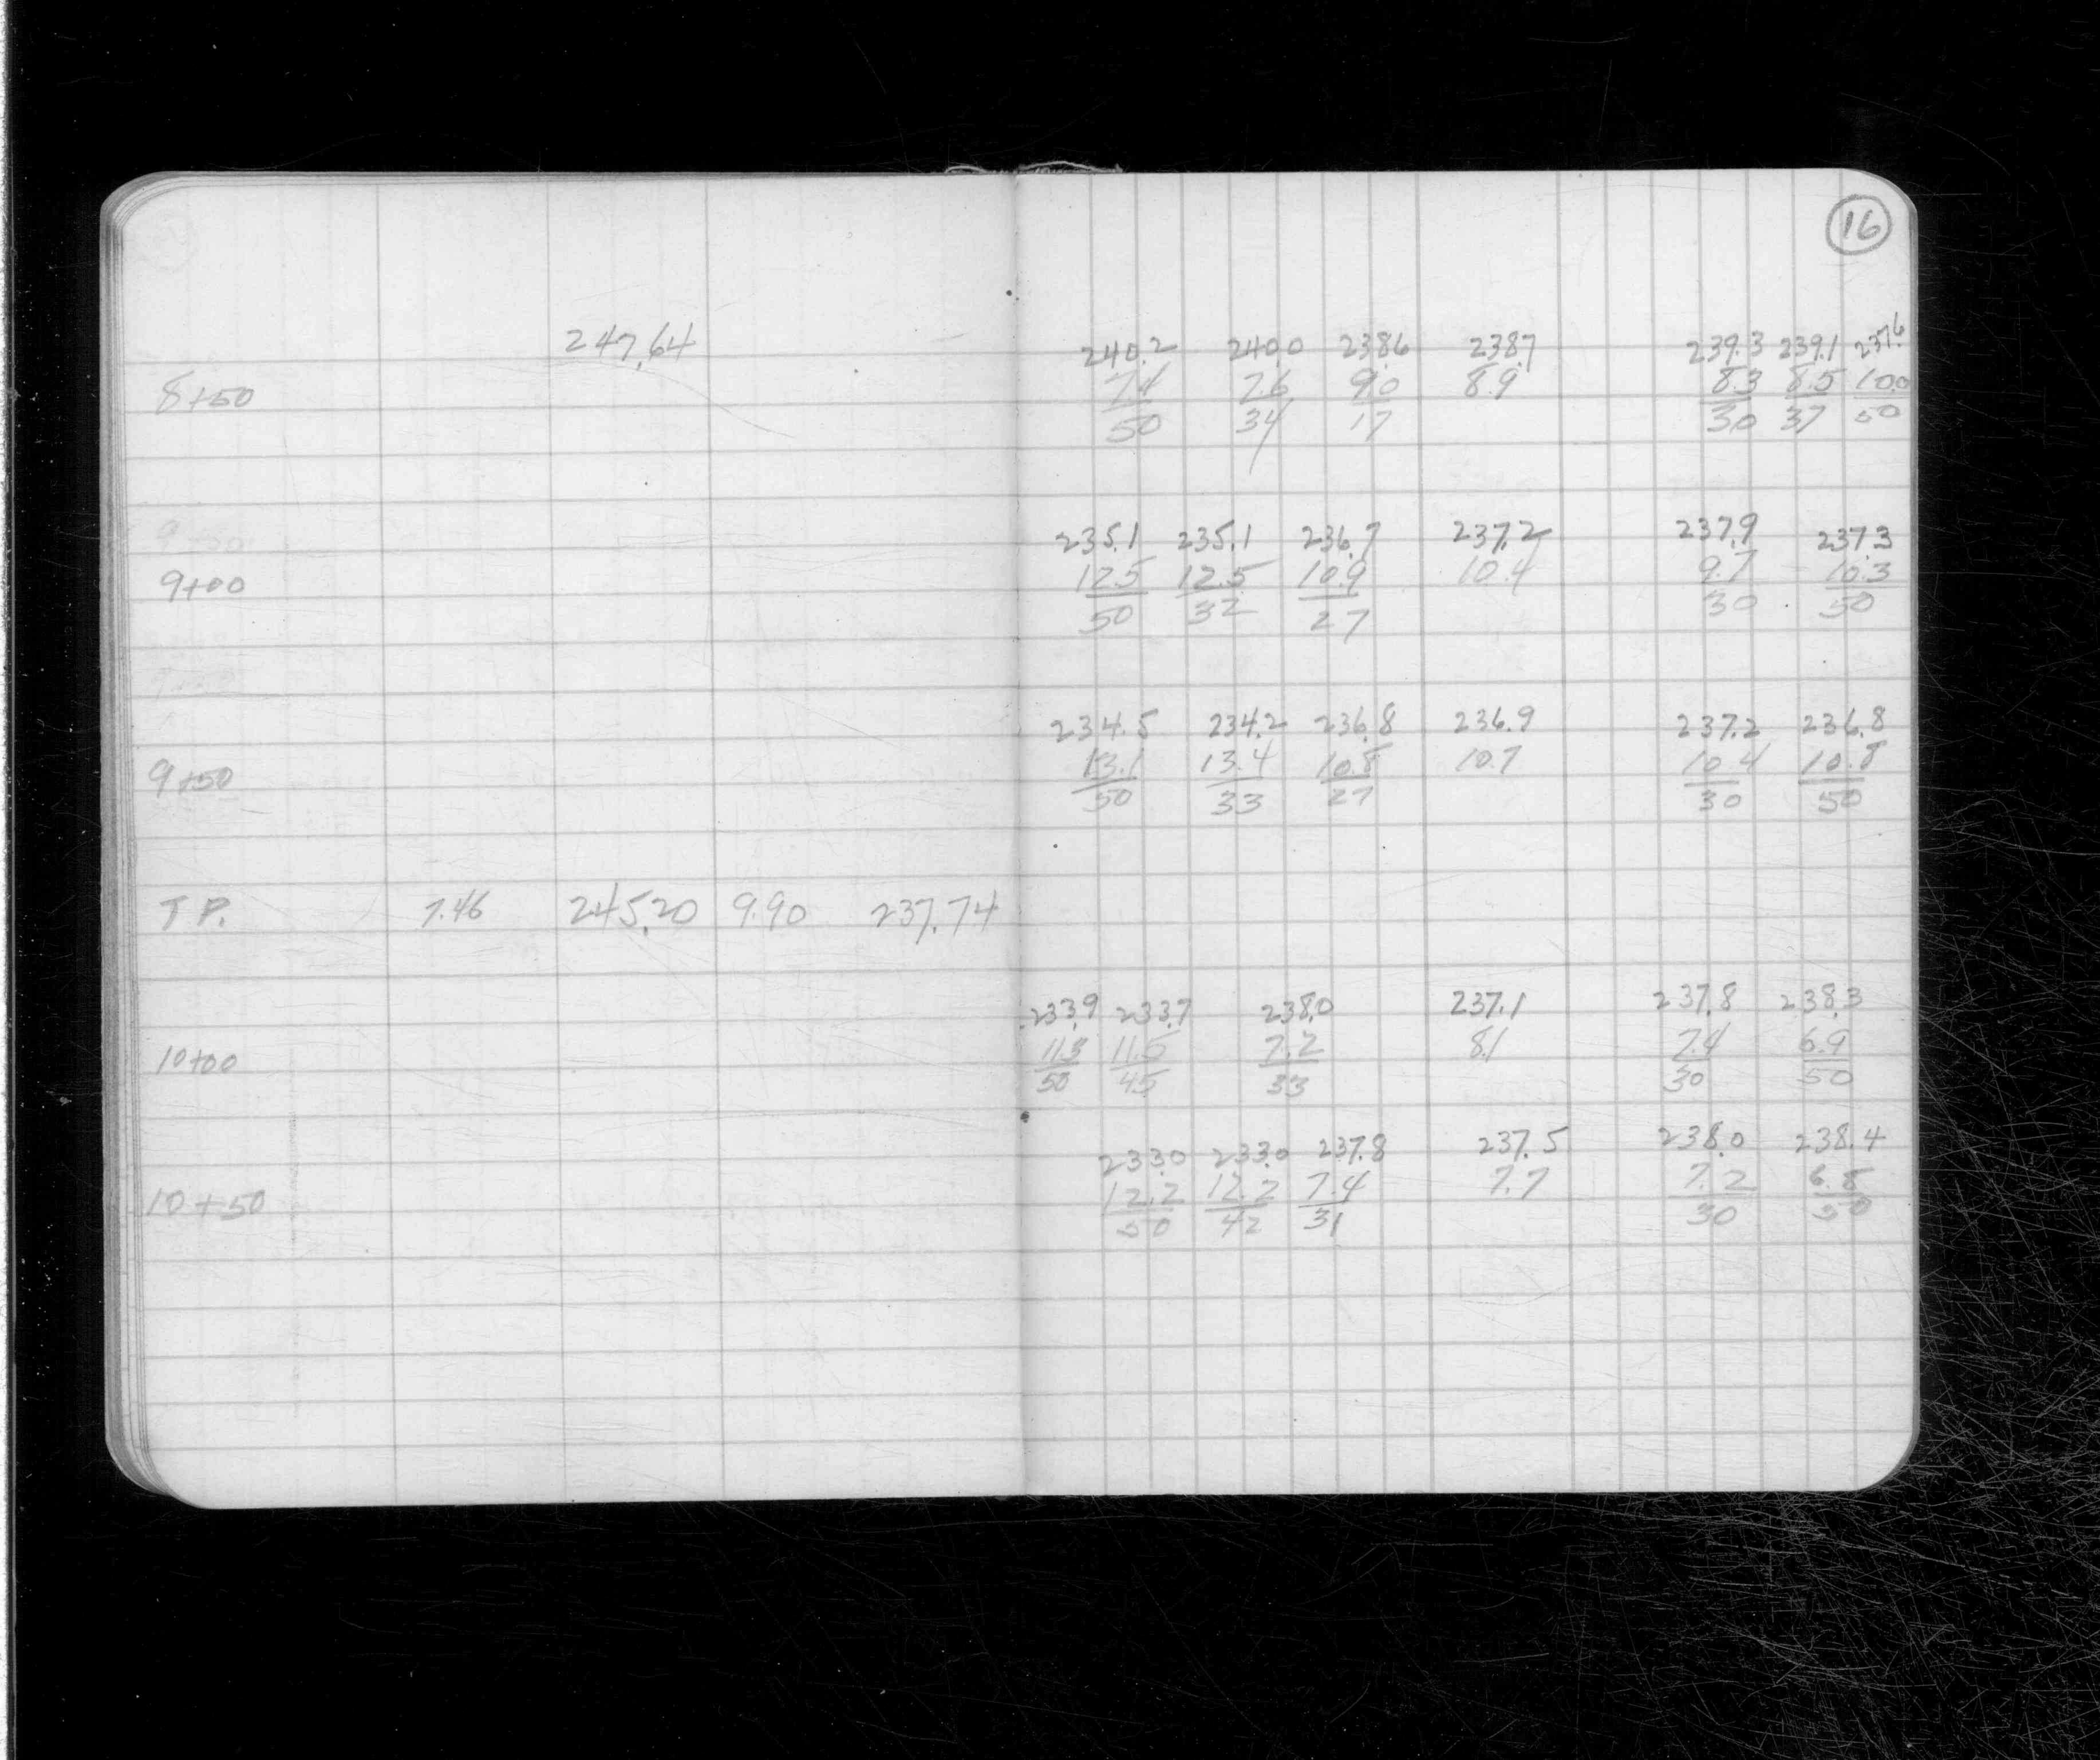 16
247.64 240.2 240.0 238.6 238.7 239.3 239.1 237.6
8+50 7.4 7.6 9.0 8.9 8.3 8.5 10.0
50 34 17 30 37 50
235.1 235.1 236.7 237.2 237.9 237.3
9+00 12.5 12.5 10.9 10.4 9.7 10.3
50 32 27 30 50
234.5 234.2 236.8 236.9 237.2 236.8
9+50 13.1 13.4 10.8 10.7 10.4 10.8
50 33 27 30 50
T.P. 7.46 245.20 9.90 237.74
233.9 233.7 238.0 237.1 237.8 238.3
10+00 11.3 11.5 7.2 8.1 7.4 6.9
50 45 33 30 50
233.0 233.0 237.8 237.5 238.0 238.4
10+50 12.2 12.2 7.4 7.7 7.2 6.8
50 42 31 30 50